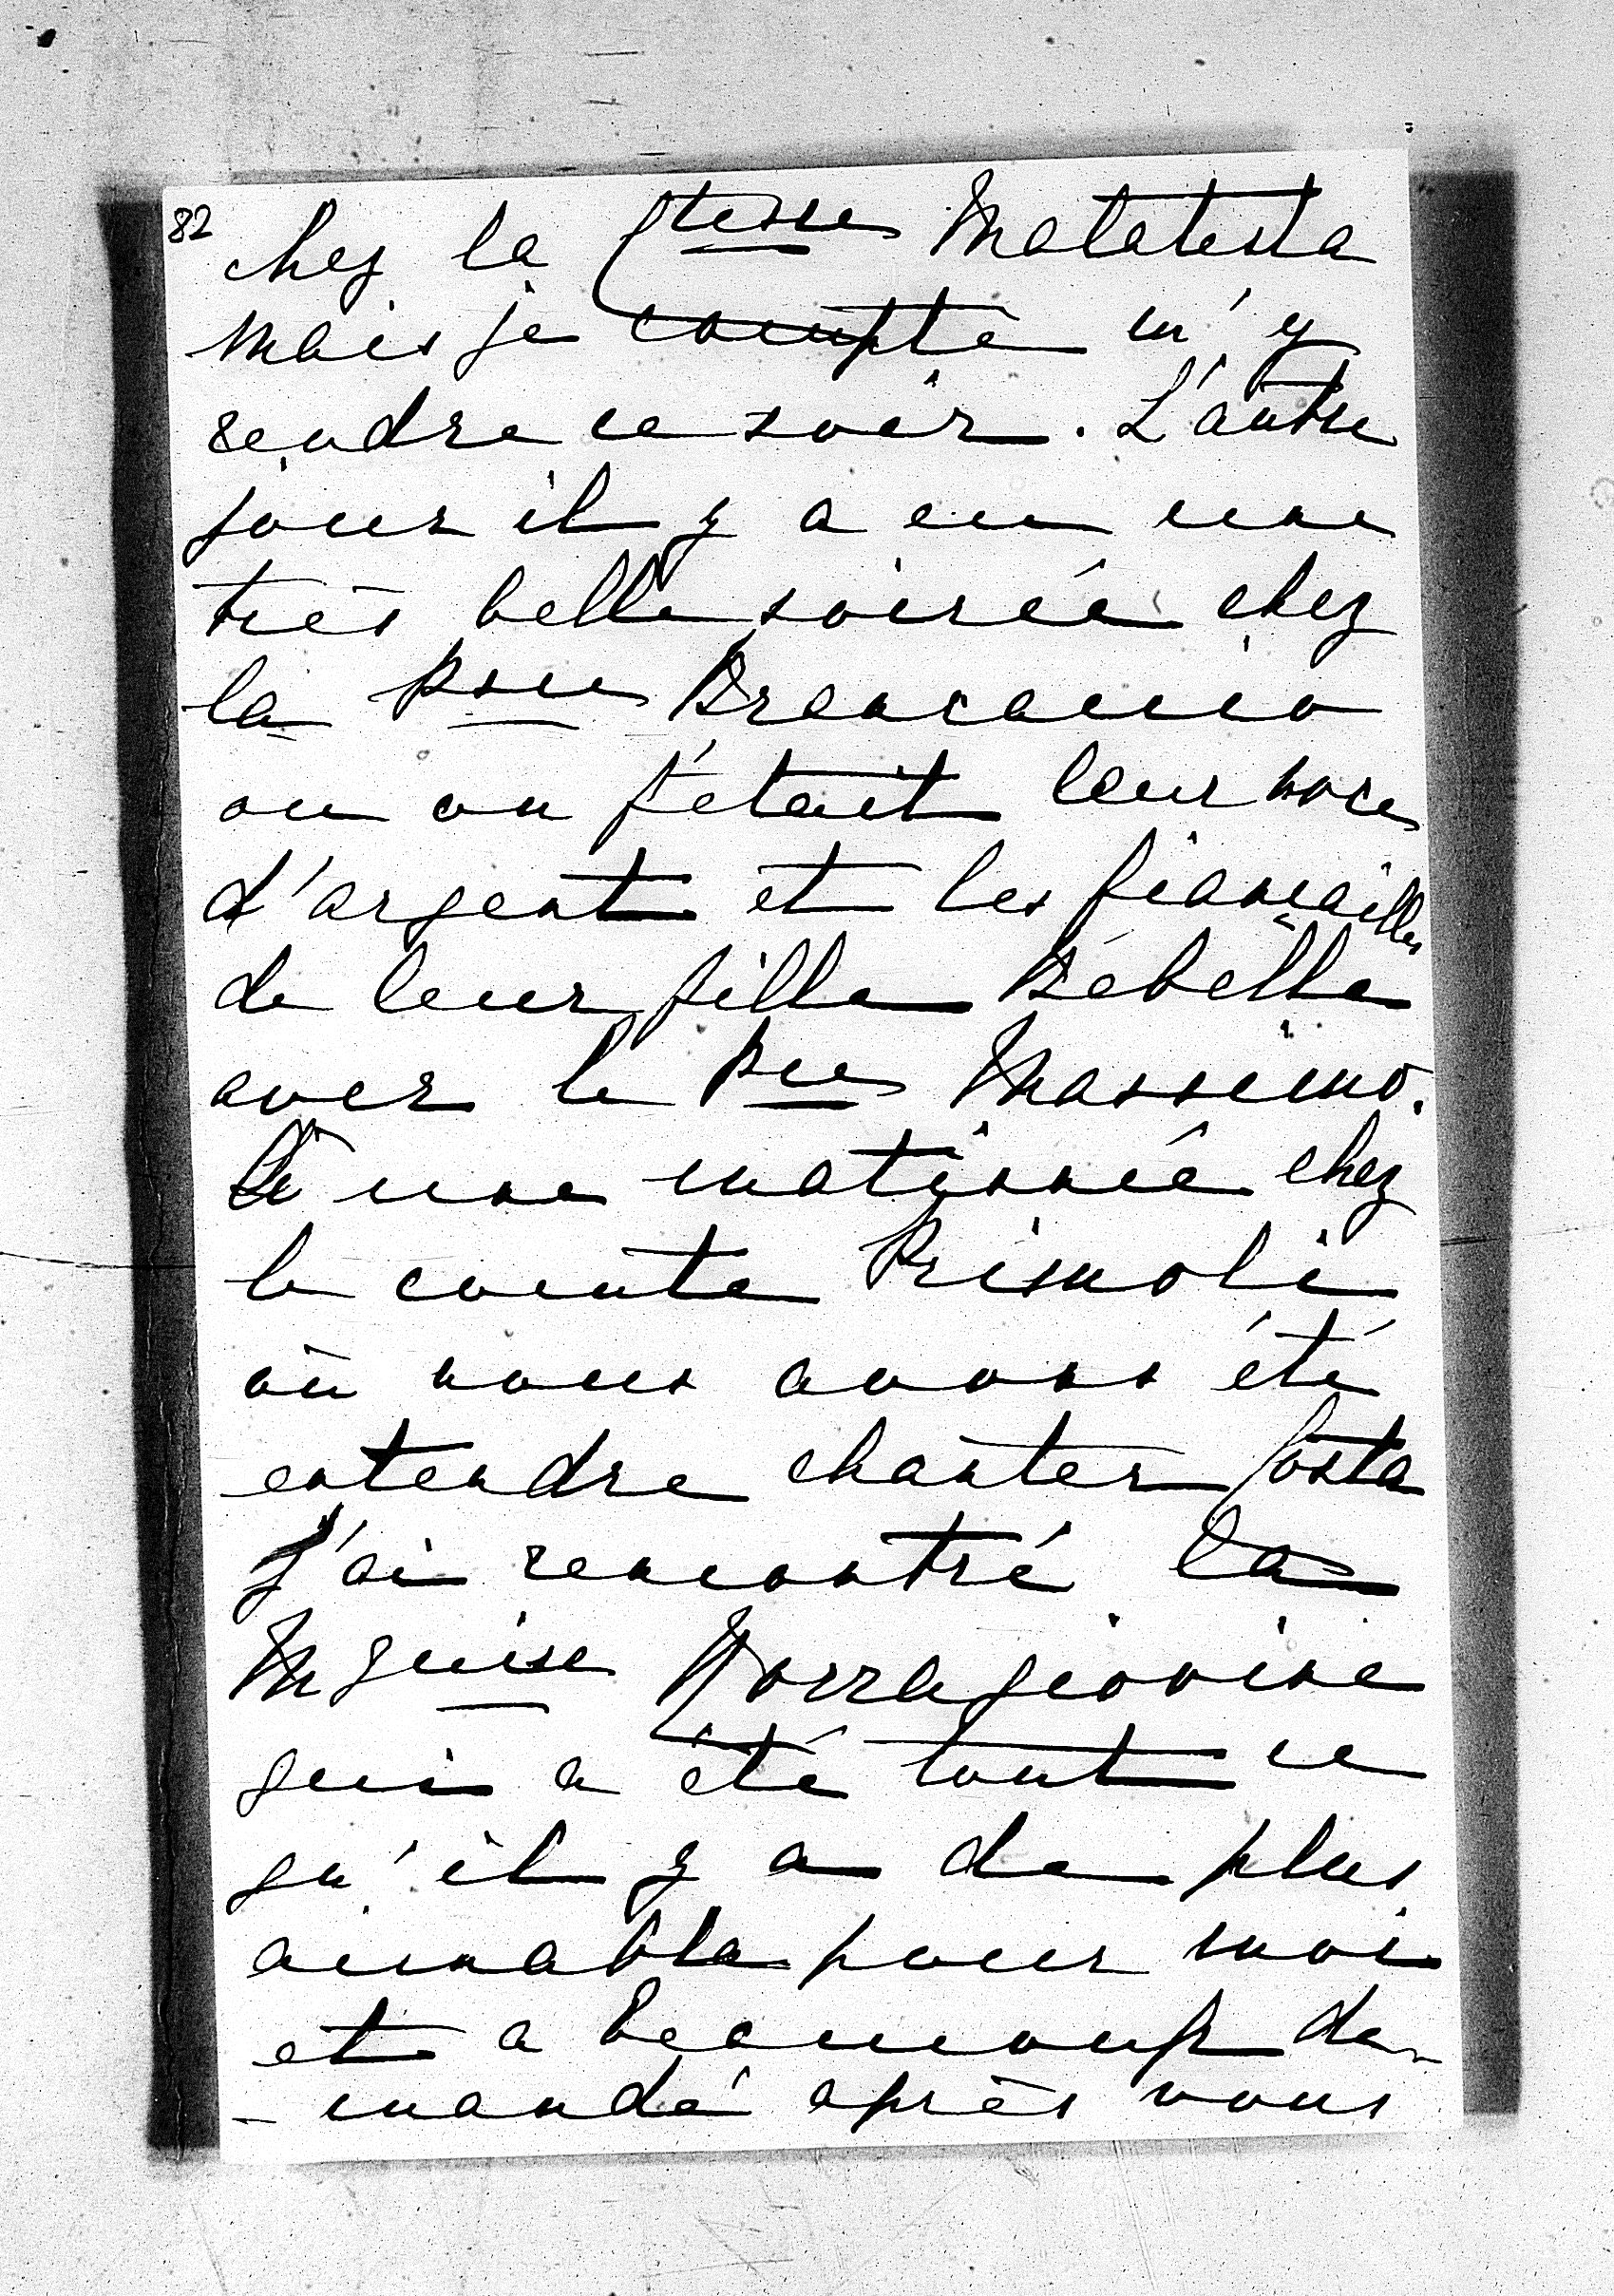 82
chez la Ctesse Malatesta
mais je compte m'y
rendre ce soir. L'autre
jour il y a eu une
très belle soirée chez
la Psse Brancaccio
ou on fêtait leur noces
d'argent et les fiançailles
de leur fille Bébelle
avec le Pce Massimo.
A une matinée chez
le comte Primoli
où nous avons été
entendre chanter Costa
J'ai rencontré la
Mquise
qui a été tout ce
qu'il y a de plus
aimable pour moi
et a beaucoup de-
-mandé après vous